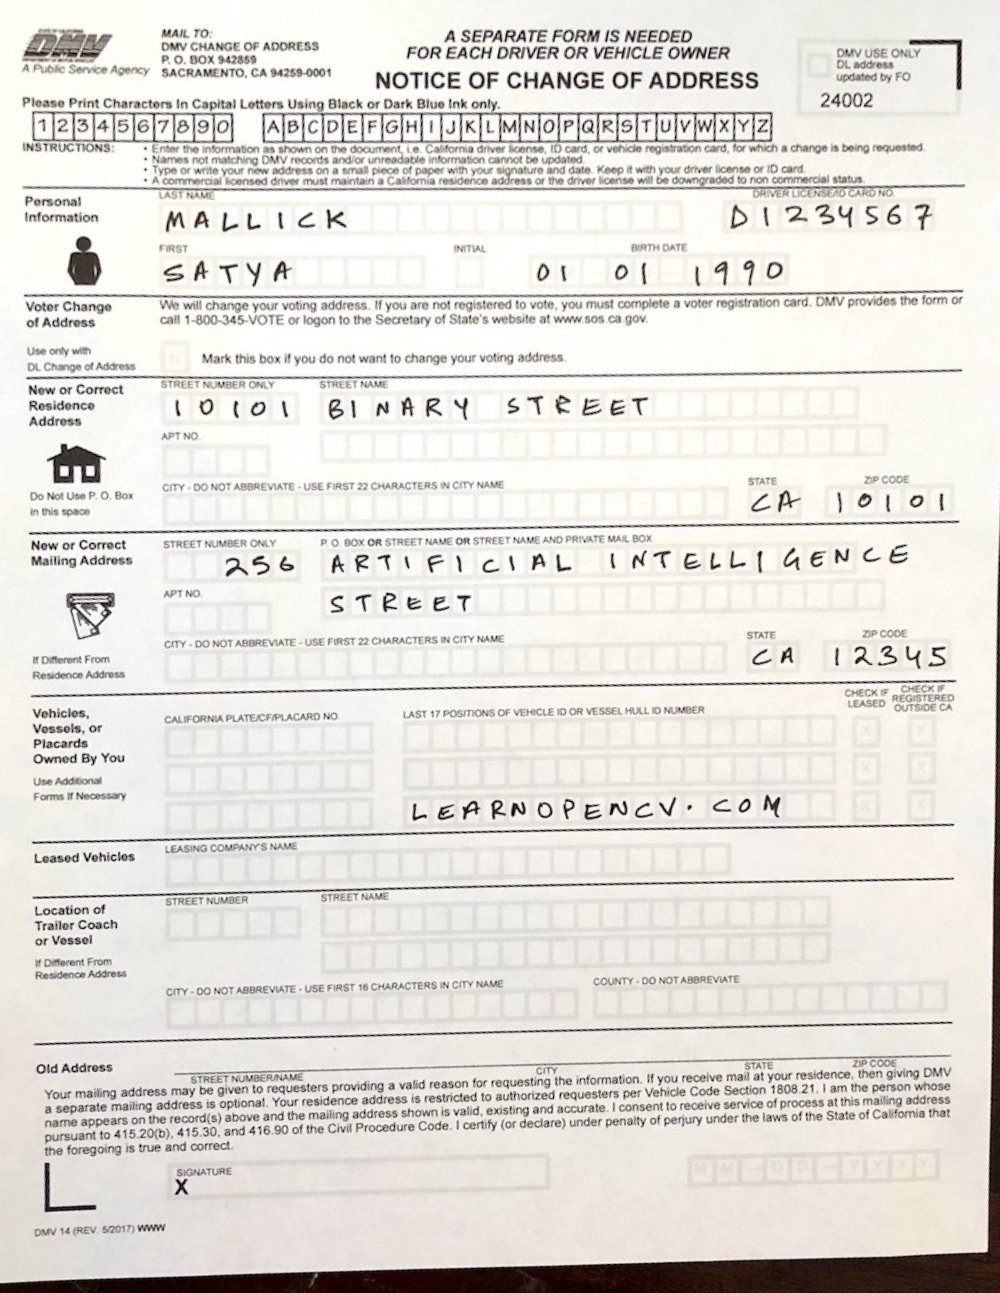 STATE OF CALIFORNIA
DMV
DEPARTMENT OF MOTOR VEHICLES
A Public Service Agency
MAIL TO:
DMV CHANGE OF ADDRESS
P. O. BOX 942859
SACRAMENTO, CA 94259-0001
A SEPARATE FORM IS NEEDED
FOR EACH DRIVER OR VEHICLE OWNER
NOTICE OF CHANGE OF ADDRESS
DMV USE ONLY
DL address
updated by FO
24002
Please Print Characters In Capital Letters Using Black or Dark Blue Ink only.
1 2 3 4 5 6 7 8 9 0 A B C D E F G H I J K L M N O P Q R S T U V W X Y Z
INSTRUCTIONS: • Enter the information as shown on the document, i.e. California driver license, ID card, or vehicle registration card, for which a change is being requested.
• Names not matching DMV records and/or unreadable information cannot be updated.
• Type or write your new address on a small piece of paper with your signature and date. Keep it with your driver license or ID card.
• A commercial licensed driver must maintain a California residence address or the driver license will be downgraded to non commercial status.
Personal
Information
LAST NAME DRIVER LICENSE/ID CARD NO.
MALLICK D1234567
FIRST INITIAL BIRTH DATE
SATYA 01 01 1990
Voter Change
of Address
Use only with
DL Change of Address
We will change your voting address. If you are not registered to vote, you must complete a voter registration card. DMV provides the form or
call 1-800-345-VOTE or logon to the Secretary of State's website at www.sos.ca.gov.
N Mark this box if you do not want to change your voting address.
New or Correct
Residence
Address
Do Not Use P. O. Box
in this space
STREET NUMBER ONLY STREET NAME
10101 BINARY STREET
APT NO.
CITY - DO NOT ABBREVIATE - USE FIRST 22 CHARACTERS IN CITY NAME STATE ZIP CODE
CA 10101
New or Correct
Mailing Address
If Different From
Residence Address
STREET NUMBER ONLY P. O. BOX OR STREET NAME OR STREET NAME AND PRIVATE MAIL BOX
256 ARTIFICIAL INTELLIGENCE
APT NO.
STREET
CITY - DO NOT ABBREVIATE - USE FIRST 22 CHARACTERS IN CITY NAME STATE ZIP CODE
CA 12345
Vehicles,
Vessels, or
Placards
Owned By You
Use Additional
Forms If Necessary
CALIFORNIA PLATE/CF/PLACARD NO. LAST 17 POSITIONS OF VEHICLE ID OR VESSEL HULL ID NUMBER
CHECK IF
LEASED
CHECK IF
REGISTERED
OUTSIDE CA
X X
X X
LEARNOPENCV.COM X X
Leased Vehicles
LEASING COMPANY'S NAME
Location of
Trailer Coach
or Vessel
If Different From
Residence Address
STREET NUMBER STREET NAME
CITY - DO NOT ABBREVIATE - USE FIRST 16 CHARACTERS IN CITY NAME COUNTY - DO NOT ABBREVIATE
Old Address
STREET NUMBER/NAME CITY STATE ZIP CODE
Your mailing address may be given to requesters providing a valid reason for requesting the information. If you receive mail at your residence, then giving DMV
a separate mailing address is optional. Your residence address is restricted to authorized requesters per Vehicle Code Section 1808.21. I am the person whose
name appears on the record(s) above and the mailing address shown is valid, existing and accurate. I consent to receive service of process at this mailing address
pursuant to 415.20(b), 415.30, and 416.90 of the Civil Procedure Code. I certify (or declare) under penalty of perjury under the laws of the State of California that
the foregoing is true and correct.
SIGNATURE
X
M M - D D - Y Y Y Y
DMV 14 (REV. 5/2017) WWW